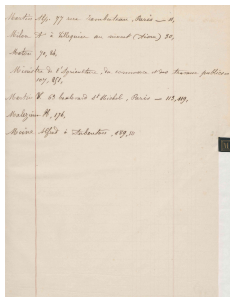 Martin Alp. 77 rue Rambuteau, Paris — 11,
Milon à Villequier au amont (Aisne) 30,
Maton 70, 26,
Ministre de l'Agriculture du commerce et des travaux publics
107, 251,
Martin V. 63 boulevard St Michel, Paris — 113, 119,
Malezieu H, 176,
Moine Alfred à Aubenton, 189, 111